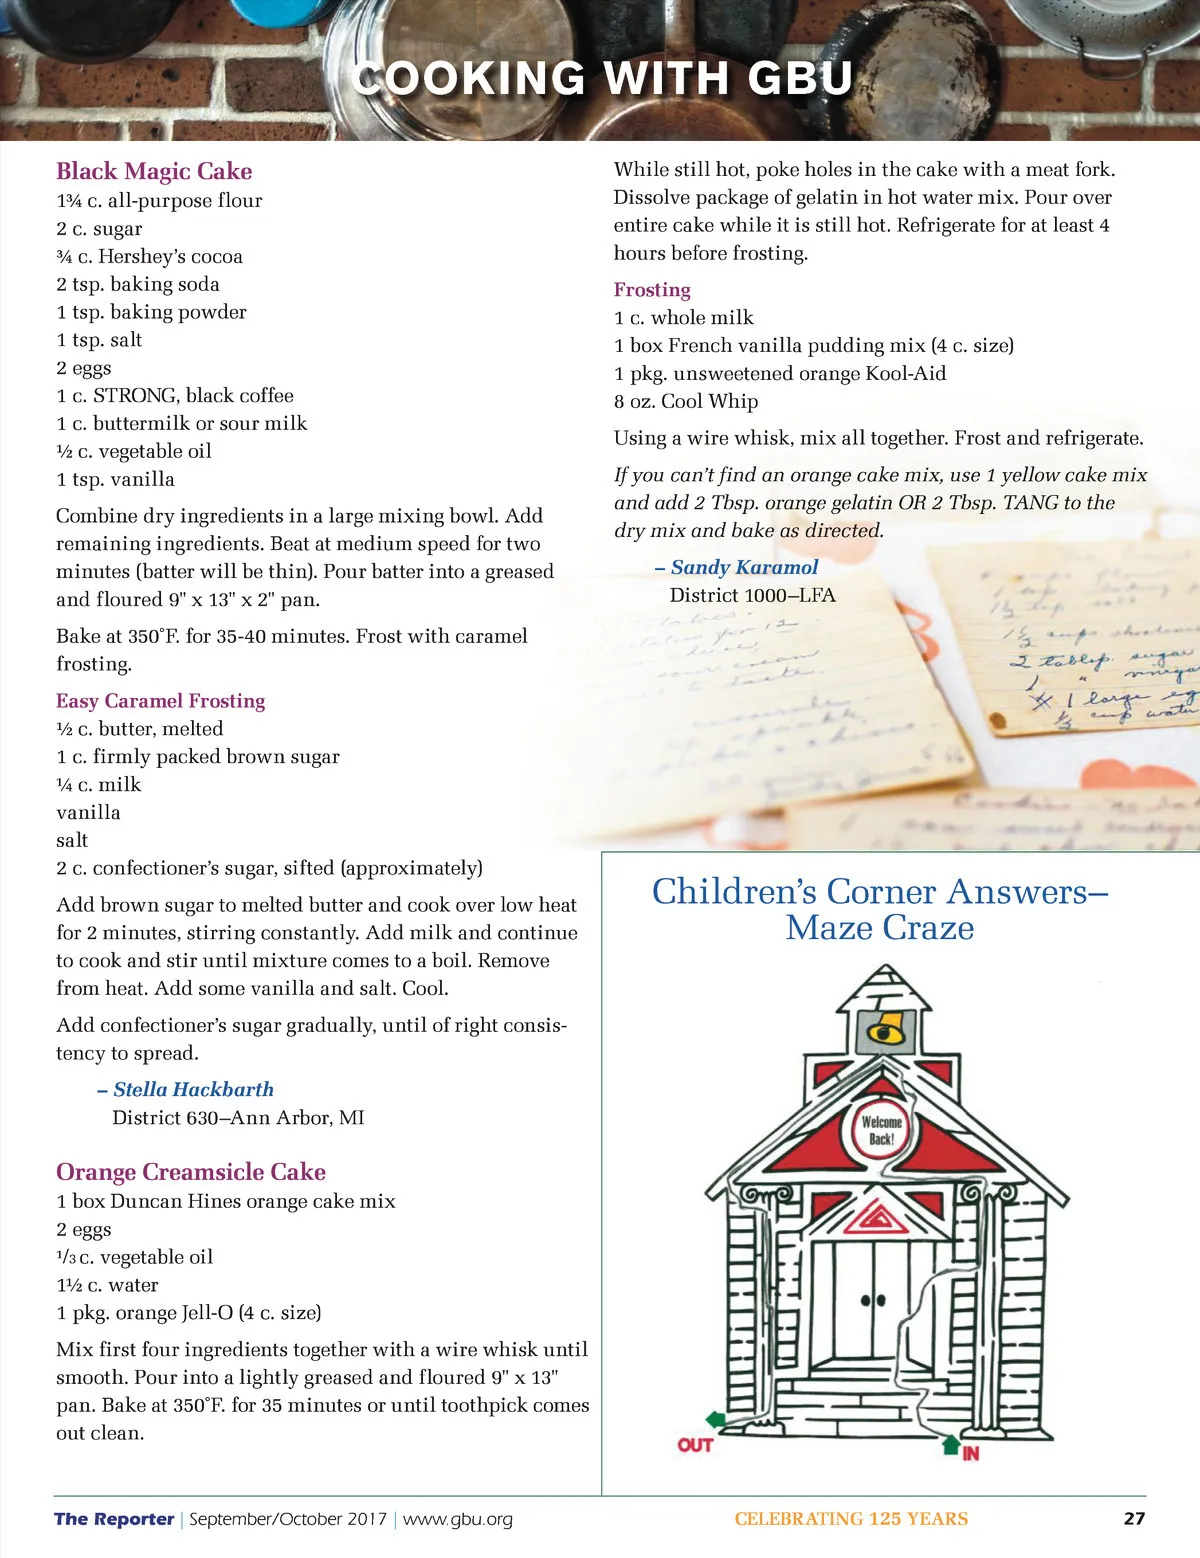 COOKING WITH GBU
Black Magic Cake
1¾ c. all-purpose flour
2 c. sugar
¾ c. Hershey's cocoa
2 tsp. baking soda
1 tsp. baking powder
1 tsp. salt
2 eggs
1 c. STRONG, black coffee
1 c. buttermilk or sour milk
½ c. vegetable oil
1 tsp. vanilla
Combine dry ingredients in a large mixing bowl. Add
remaining ingredients. Beat at medium speed for two
minutes (batter will be thin). Pour batter into a greased
and floured 9" x 13" x 2" pan.
Bake at 350˚F. for 35-40 minutes. Frost with caramel
frosting.
Easy Caramel Frosting
½ c. butter, melted
1 c. firmly packed brown sugar
¼ c. milk
vanilla
salt
2 c. confectioner's sugar, sifted (approximately)
Add brown sugar to melted butter and cook over low heat
for 2 minutes, stirring constantly. Add milk and continue
to cook and stir until mixture comes to a boil. Remove
from heat. Add some vanilla and salt. Cool.
Add confectioner's sugar gradually, until of right consis-
tency to spread.
– Stella Hackbarth
District 630–Ann Arbor, MI
Orange Creamsicle Cake
1 box Duncan Hines orange cake mix
2 eggs
1/3 c. vegetable oil
1½ c. water
1 pkg. orange Jell-O (4 c. size)
Mix first four ingredients together with a wire whisk until
smooth. Pour into a lightly greased and floured 9" x 13"
pan. Bake at 350˚F. for 35 minutes or until toothpick comes
out clean.
While still hot, poke holes in the cake with a meat fork.
Dissolve package of gelatin in hot water mix. Pour over
entire cake while it is still hot. Refrigerate for at least 4
hours before frosting.
Frosting
1 c. whole milk
1 box French vanilla pudding mix (4 c. size)
1 pkg. unsweetened orange Kool-Aid
8 oz. Cool Whip
Using a wire whisk, mix all together. Frost and refrigerate.
If you can't find an orange cake mix, use 1 yellow cake mix
and add 2 Tbsp. orange gelatin OR 2 Tbsp. TANG to the
dry mix and bake as directed.
– Sandy Karamol
District 1000–LFA
2 tablsp. sugar
1 large eg
⅓ cup water
Children's Corner Answers–
Maze Craze
Welcome
Back!
OUT
IN
The Reporter | September/October 2017 | www.gbu.org
CELEBRATING 125 YEARS
27